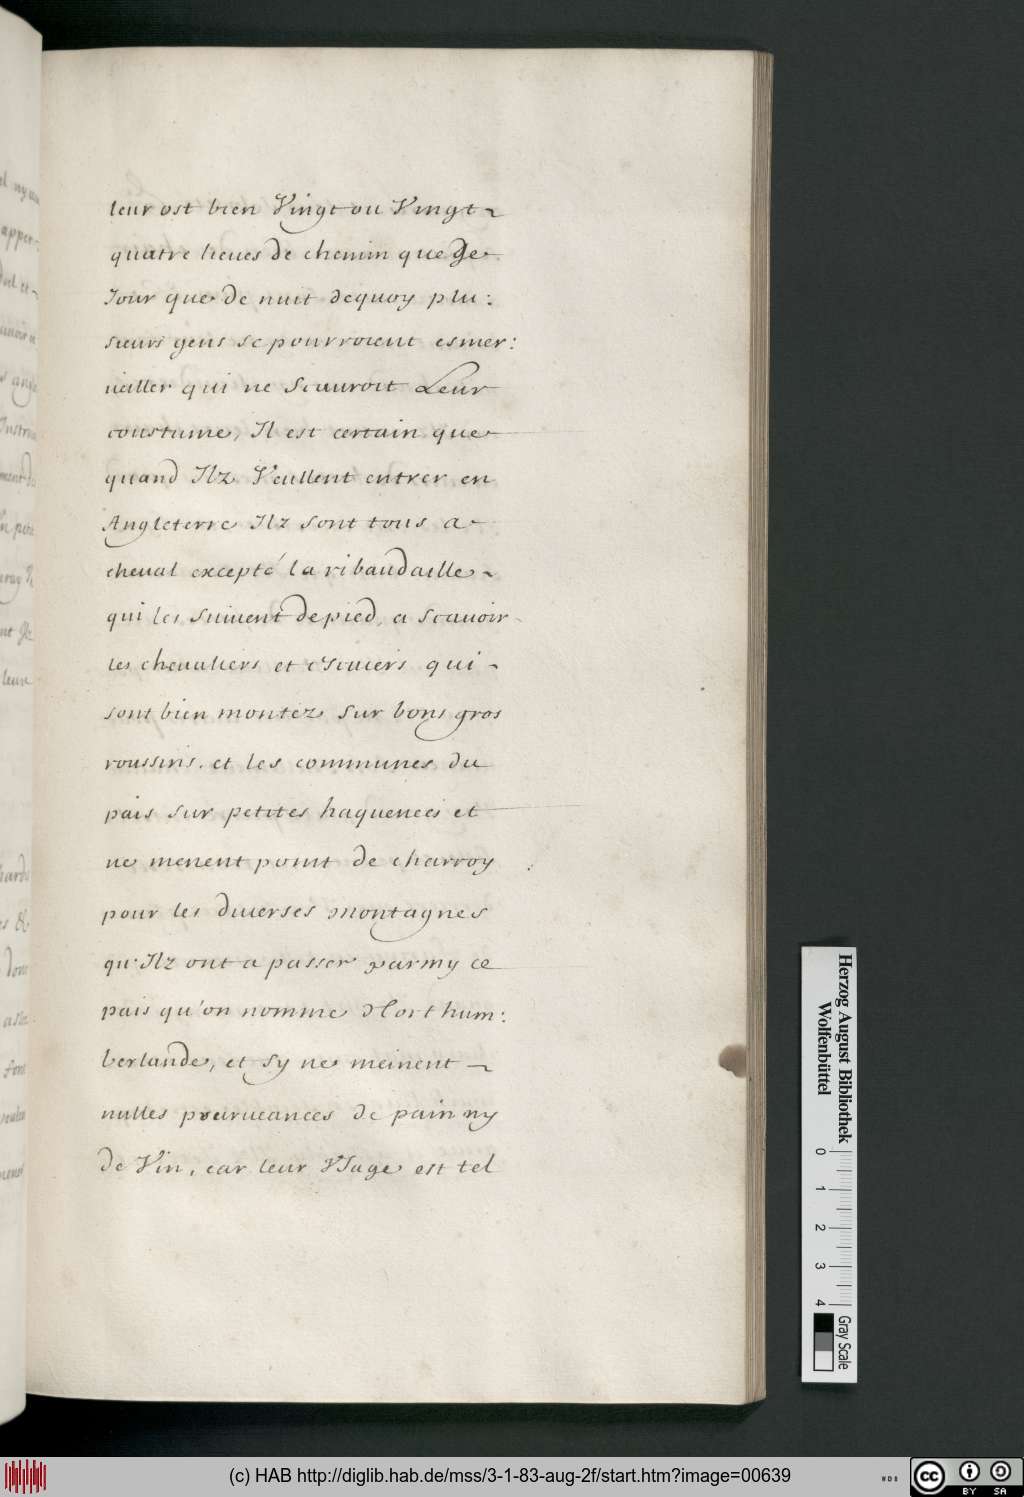 leur ost bien Vingt ou Vingt ~
quatre lieues de chemin que De
Jour que de nuit dequoy plu:
sieurs gens se pourroient esmer:
ueiller qui ne Scauroit Leur
coustume, Il est certain que
quand Ilz Veullent entrer en
Angleterre Ilz sont tous a
cheual excepté la ribaudaille ~
qui les suiuent de pied, a scauoir
les cheualiers et escuiers qui -
sont bien montez sur bons gros
roussins. et les communes du
pais sur petites haquenees et
ne menent point de charroy
pour les diuerses montagnes
qu'Ilz ont a passer parmy ce
pais qu'on nomme Northum:
berlande, et sy ne meinent ~
nulles pourueances de pain ny
de Vin, car leur Vsage est tel
Herzog August Bibliothek
Wolfenbüttel
0 1 2 3 4
Gray Scale
(c) HAB http://diglib.hab.de/mss/3-1-83-aug-2f/start.htm?image=00639
WDB
cc BY SA